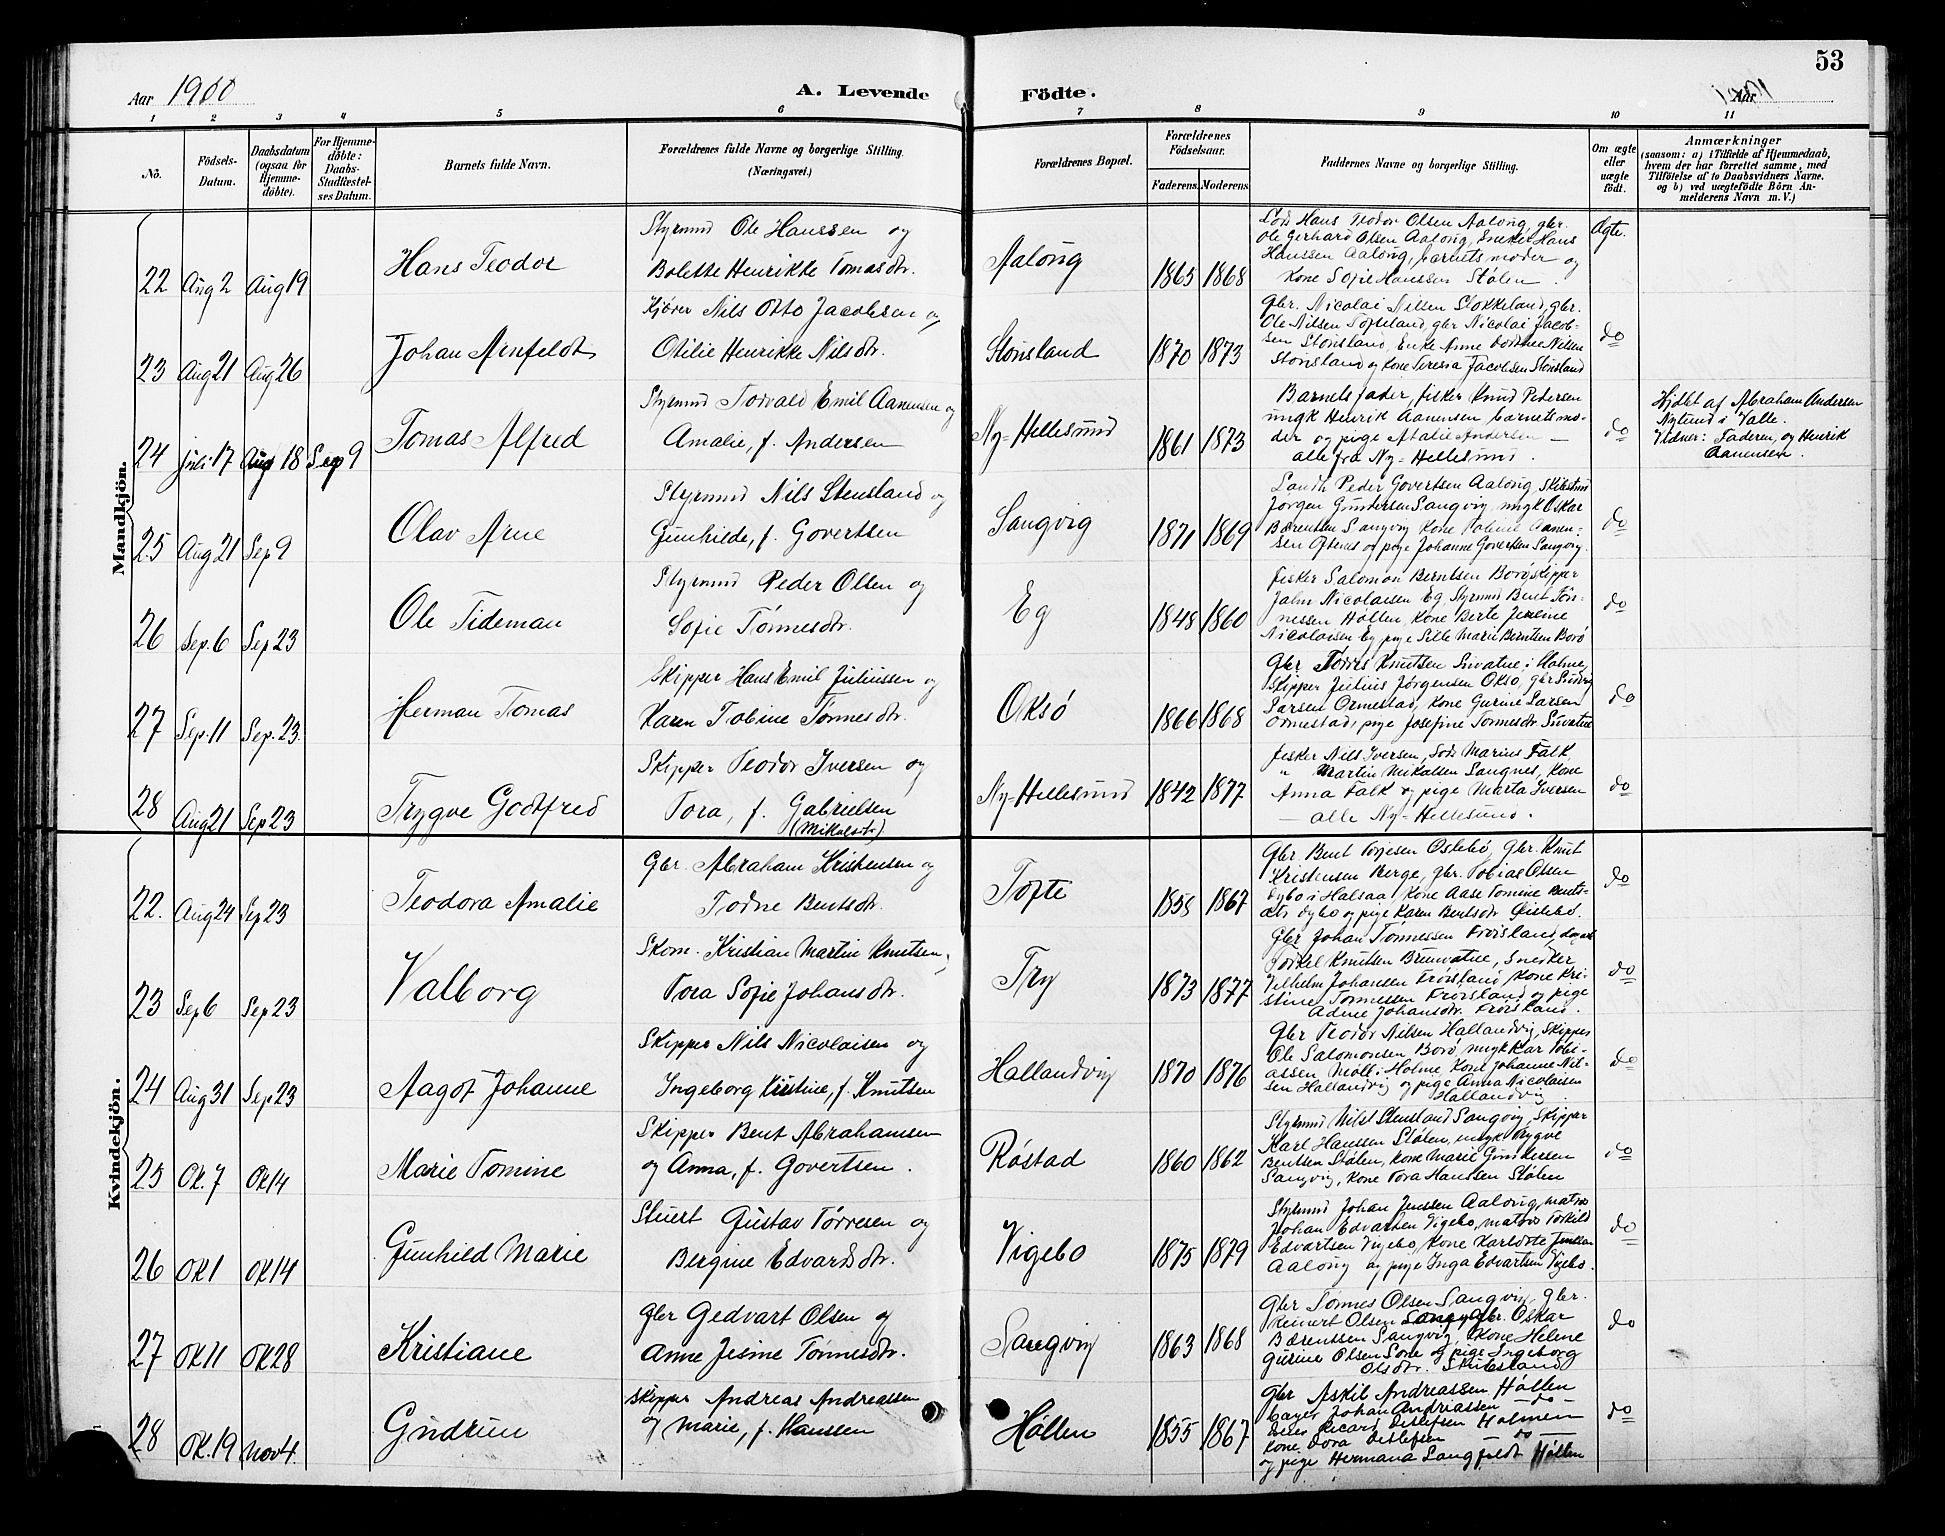 53
Aar 1900
A. Levende Födte.
Aar
1 2 3 4 5 6 7 8 9 10 11
No.
Födsels-Datum.
Daabsdatum (ogsaa for Hjemme-döbte).
For Hjemme-döbte: Daabs-Stadfæstel-ses Datum.
Barnets fulde Navn.
Forældrenes fulde Navne og borgerlige Stilling. (Næringsvei.)
Forældrenes Bopæl.
Forældrenes Födselsaar.
Faderens. Moderens.
Faddernes Navne og borgerlige Stilling.
Om ægte eller uægte födt.
Anmærkninger
(saasom: a) i Tilfælde af Hjemmedaab,
hvem der har forrettet samme, med
Tilföielse af to Daabsvidners Navne.
og b) ved uægtefödte Börn An-
melderens Navn m. V.)
Mandkjön.
22 Aug 2 Aug 19
Hans Teodor
Styrmnd Ole Hanssen og
Bolette Henrikke Tomasdtr.
Aalong
1865 1868
Hans Teodor Olsen Aalong, gbr.
Ole Gerhard Olsen Aalong, Enker Hans
Hanssen Aalong, barnets moder og
Kone Sofie Hanssen Stølen.
Ægte.
23 Aug 21 Aug 26
Johan Arnfeldt
Kjører Nils Otto Jacobsen og
Otilie Henrikke Nilsdtr.
Stønsland
1870 1873
Gbr. Nicolai Nilsen Stokkeland, gbr.
Ole Nilsen Tofteland, gbr Nicolai Jacob-
sen Stønsland, Enke Anne Nilsen
Stønsland og kone Teresia Jacobsen Stønsland
do
24 Juli 17 Aug 18 Sep 9
Tomas Alfred
Styrmnd Torvald Emil Aanensen og
Amalie, f. Andersen
Ny-Hellesund
1861 1873
Barnets fader, fisker Knud Pedersen
ungk Henrik Aanensen, barnets mo-
der og pige Atalie Andersen —
alle fra Ny-Hellesund.
do
Hjdbt af Abraham Andersen
Nylund i Valle.
Vidner: Faderen, og Henrik
Aanensen.
25 Aug 21 Sep 9
Olav Arne
Styrmnd Nils Stensland og
Gunhilde, f. Govertsen
Sangvig
1871 1869
Landh Peder Govertsen Aalong,
Jørgen Gundersen Sangvig, ungk Oskar
Bærentsen Sangvig, Kone Aanen-
sen Oftenes og pige Johanne Govertsen Sangvig.
do
26 Sep. 6 Sep 23
Ole Tideman
Styrmnd Peder Olsen og
Sofie Tönnesdtr.
Eg
1848 1860
fisker Salomon Berntsen Borø, skipper
Jahn Nicolaisen Eg, Styrmnd Bent Tön-
nessen Høllen, Kone Berte
Nicolaisen Eg pige Sille Marie Berntsen Borø
do
27 Sep. 11 Sep. 23
Herman Tomas
Skipper Hans Emil Juliussen og
Karen Tobine Tönnesdtr.
Oksø
1866 1868
Gbr Knutsen i Holme,
Skipper Julius Jørgensen Oksø, gbr
Larsen Ormestad, Kone Gurine Larsen
Ormestad, pige Josefine Tönnesdtr
do
28 Aug 21 Sep 23
Trygve Godtfred
Skipper Teodor Iversen og
Tora, f. Gabrielsen
(Mikalsdt)
Ny-Hellesund
1842 1877
fisker Nils Iversen, Marius Falk,
" Martin Mikalsen Sangnes, Kone
Anna Falk og pige Marta Iversen
— alle Ny-Hellesund.
do
Kvindekjön.
22. Aug 24 Sep 23
Teodora Amalie
Gbr. Abraham Kristensen og
Todne Bentsdtr.
Tofte
1858 1867
Gbr. Bent Torjesen Østebø, Gbr. Knut
Kristensen Berge, gbr. Tobias Olsen
Dybo i Halsaa, Kone Aase Tomine Bents-
dtr Dybo og pige Karen Bentsdtr Østebø.
do
23 Sep 6 Sep 23
Valborg
Skom. Kristian Martin Knutsen,
Tora Sofie Johansdtr.
Try
1873 1877
Gbr Johan Tönnessen Frøisland,
Torkel Knutsen Brunvatne, Snedker
Vilhelm Johansen Frøisland, Kone Kri-
stine Tönnessen Frøisland og pige
Johansdtr. Frøisland.
do
24 Aug 31 Sep 23
Aagot Johanne
Skipper Nils Nicolaisen og
Ingeborg Kristine, f. Knutsen
Hallandvig
1870 1876
Gbr Teodor Nilsen Hallandvig, Skipper
Ole Salomonsen Borø, ungk Kar Tobi-
assen Moll i Holme, Kone Johanne Nil-
sen Hallandvig og pige Anna Nicolaisen
Hallandvig.
do
25 Ok. 7 Ok 14
Marie Tomine
Skipper Bent Abrahamsen
og Anna, f. Govertsen.
Røstad
1860 1862
Styrmnd Nils Stensland Sangvig, Skipper
Karl Hanssen Stølen, ungk Trygve
Bentsen Stølen, Kone Marie Gundersen
Sangvig, Kone Tora Hanssen Stølen
do
26 Ok 1 Ok 14
Gunhild Marie
Stuert Gustav Törresen og
Bergine Edvardsdtr.
Vigebo
1875 1879
Styrmnd Johan Jenssen Aalong, matros
Johan Edvartsen Vigebo, matros Torkild
Edvartsen Vigebo, Kone Jenssen
Aalong og pige Inga Edvartsen Vigebo.
do
27 Ok 11 Ok 28
Kristiane
Gbr Gedvart Olsen og
Anne Jesine Tönnesdtr.
Sangvig
1863 1868
Gbr Tönnes Olsen Sangvig, Gbr.
Reinert Olsen Sangvig, Gbr. Oskar
Bærentsen Sangvig, Kone Helene
Gurine Olsen og pige Ingeborg
Olsdtr.
do
28 Ok. 19 Nov 4.
Gudrun
Skipper Andreas Andreassen
og Marie, f. Hanssen
Høllen
1855 1867
Gbr Askil Andreassen Høllen
Johan Andreassen — do —
Ricard Detlefsen Holmen
Kone Dora Detlefsen do
og pige Hermana Langfeldt Høllen
do